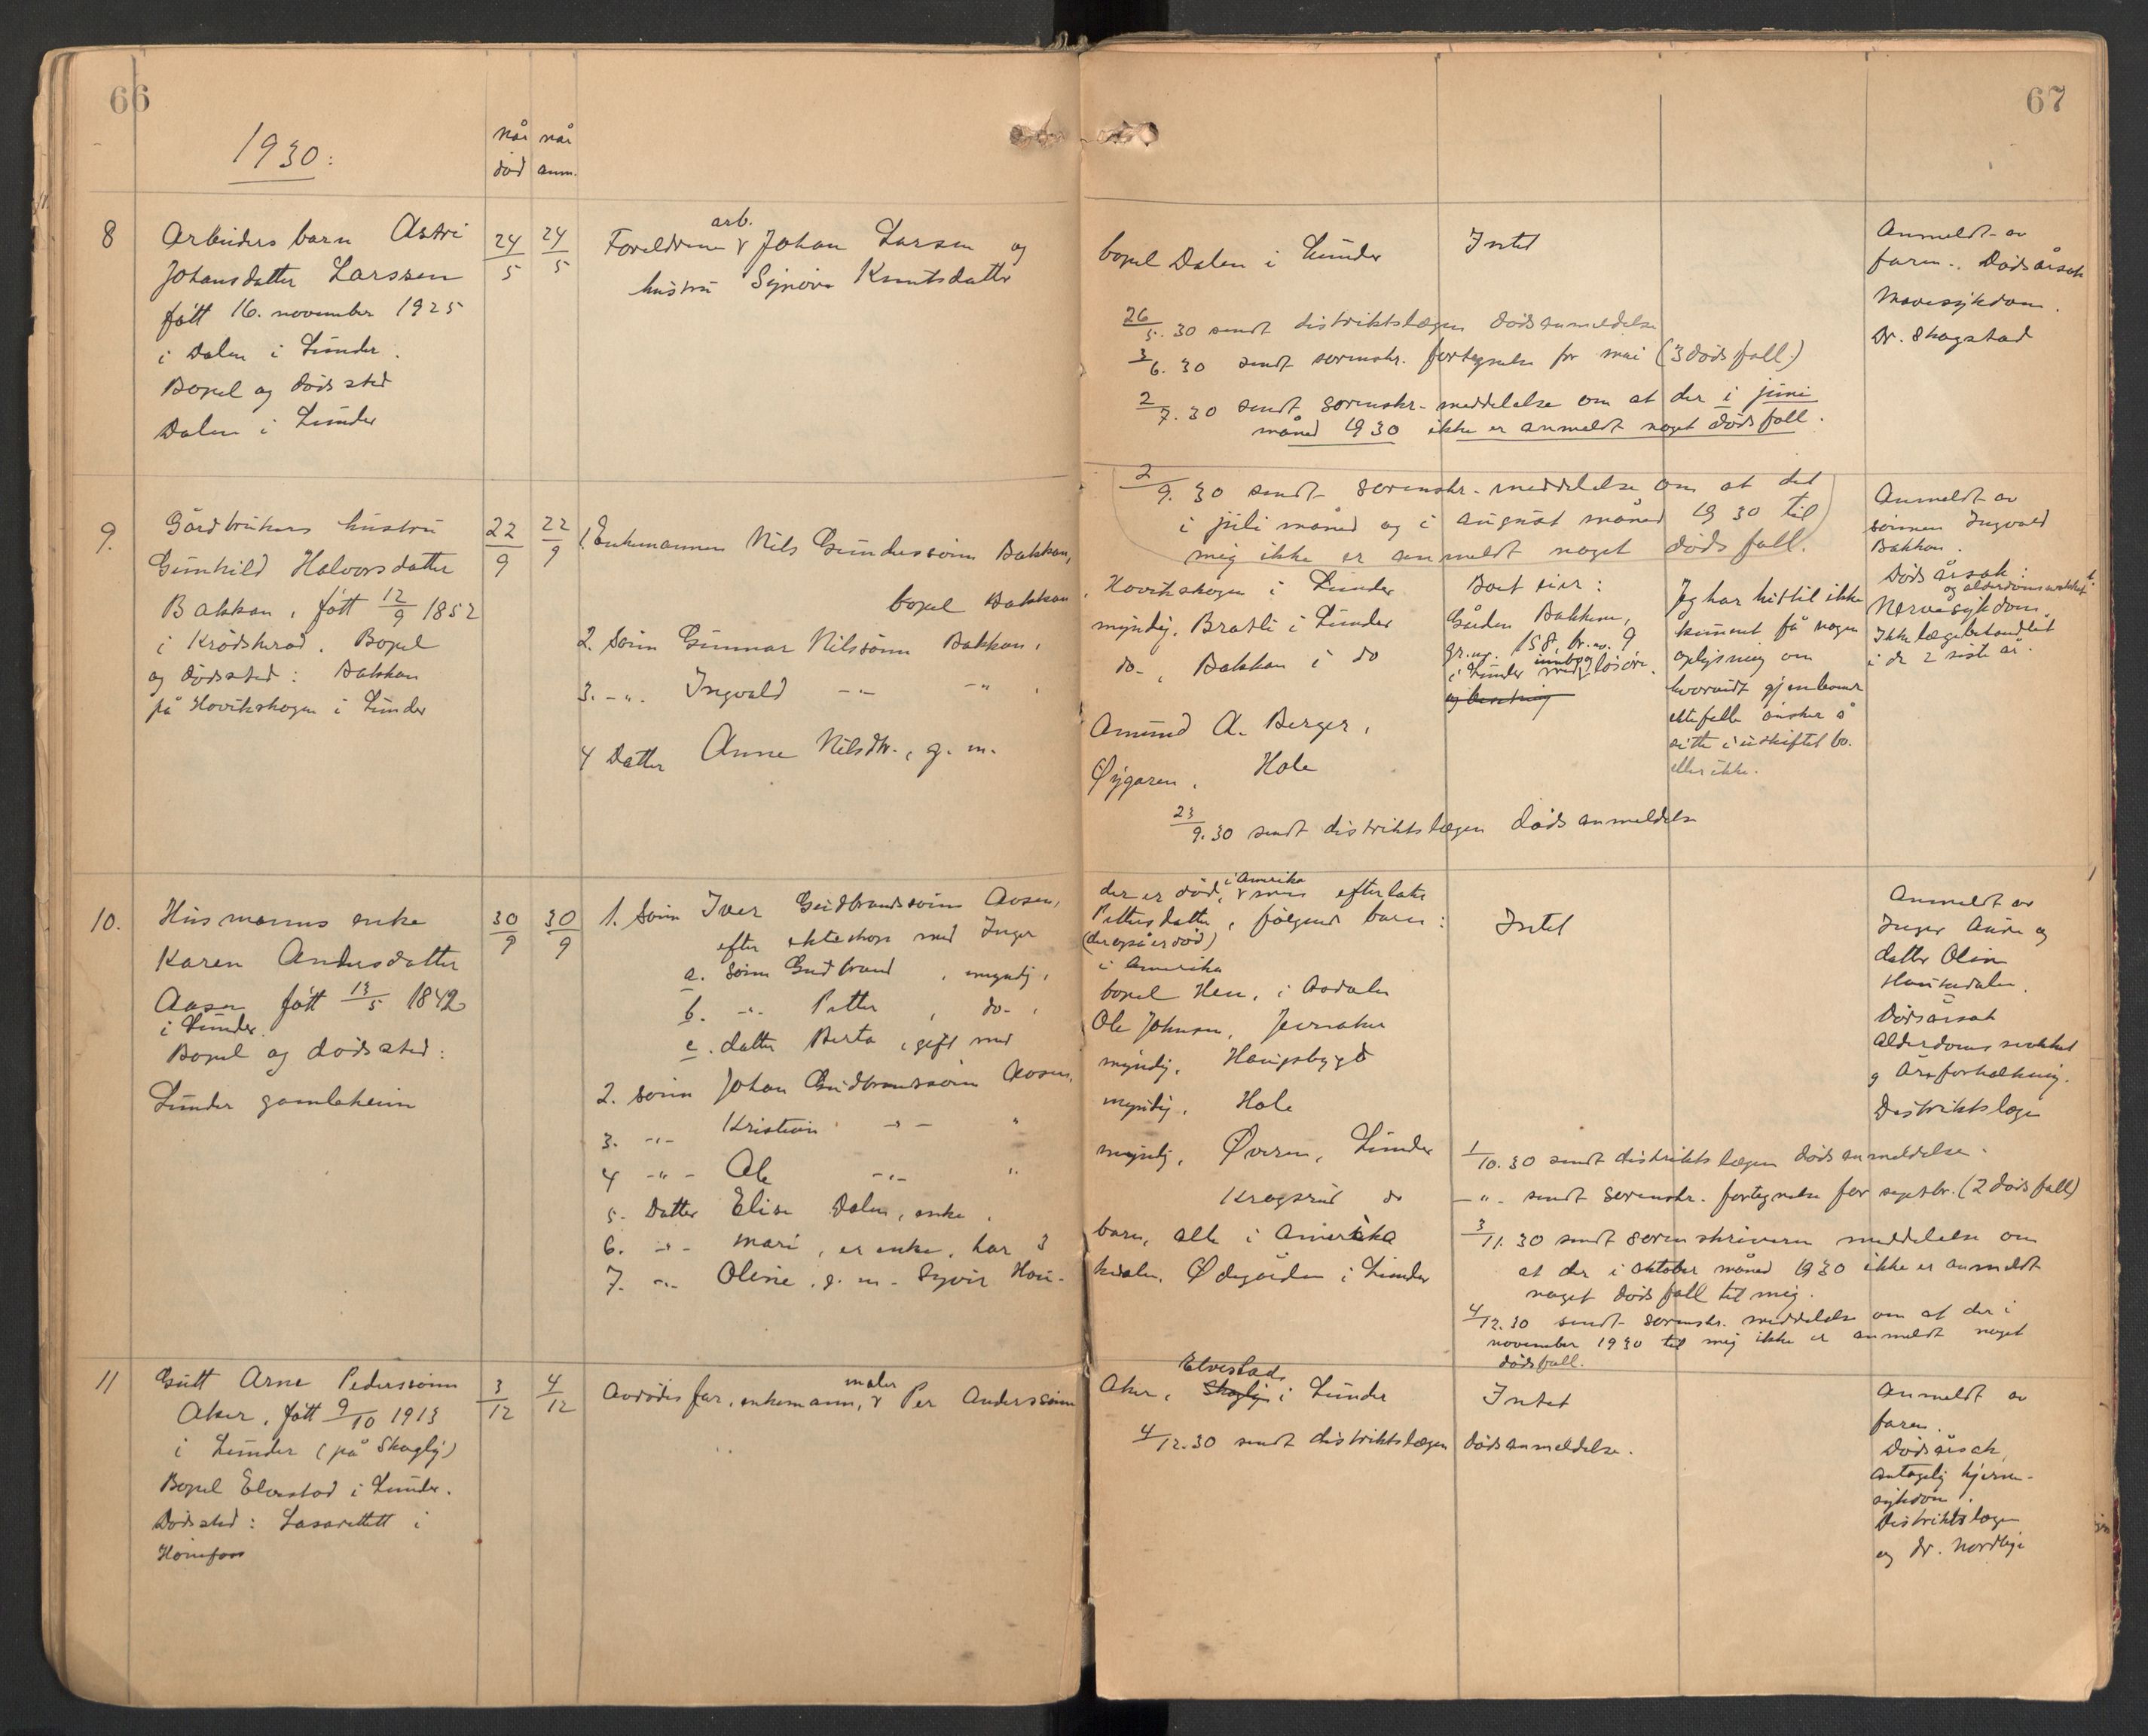 66
67
1930:
når når
død anm.
8
Arbeiders barn Astri
Johansdatter Larssen
født 16. november 1925
i Dalen i Lunder.
Bopel og dødssted
Dalen i Lunder
24/5
24/5
arb.
Foreldrene Johan Larsen og
hustru Synøve Knutsdatter
bopel Dalen i Lunder
Intet
26/5. 30 sendt distriktslægen dødsanmeldelse
3/6. 30 sendt sorenskr. fortegnelse for mai (3 dødsfall)
2/7. 30 sendt sorenskr. meddelelse om at der i juni
måned 1930 ikke er anmeldt noget dødsfall.
Anmeldt av
faren. Dødsårsak
Mavesykdom.
Dr. Skagstad
2/9. 30 sendt sorenskr. meddelelse om at det
i juli måned og i august måned 1930 til
mig ikke er anmeldt noget dødsfall.
9.
Gårdbrukers hustru
Gunhild Halvorsdatter
Bakken, født 12/9 1852
i Krødsherad. Bopel
og dødssted: Bakken
på Hovikskogen i Lunder
22/9
22/9
1. Enkemannen Nils Gunderssønn Bakken,
bopel Bakken
2. Sønn Gunnar Nilssønn Bakken,
3. -"- Ingvald -"- -"- ,
4 Datter Anne Nilsdtr., g. m.
, Hovikskogen i Lunder
myndig, Bratli i Lunder
do- , Bakken i do
Amund A. Berger,
Øygaren, Hole
Boet eier:
Gården Bakken,
gr.nr. 158, br.nr. 9
i Lunder med innbo og løsøre.
og besetning
Jeg har hittil ikke
kunnet få nogen
oplysning om
hvorvidt gjenlevende
ektefelle ønsker å
sitte i uskiftet bo.
eller ikke.
Anmeldt av
sønnen Ingvald
Bakken.
Dødsårsak:
og alderdomssvakhet
Nervesykdom.
Ikke lægebehandlet
i de 2 siste år.
23/9. 30 sendt distriktslægen dødsanmeldelse
10.
Husmanns enke
Karen Andersdatter
Aasen født 13/5 1842
i Lunder.
Bopel og dødssted:
Lunder gamleheim
30/9
30/9
1. Sønn Iver Gudbrandssønn Aasen,
efter ekteskap med Inger
a. Sønn Gudbrand , myndig,
b. -"- Petter , do- ,
c. datter Berta , gift med
2. sønn Johan Gudbrandssønn Aasen,
3. -"- Kristian -"- "
4 -"- Ole -"- "
5. Datter Elise Dalen, enke,
6. -"- Mari, er enke, har 3
7. -"- Oline, g. m. Syver Hau-
i Amerika
der er død, som efterlater
Pettersdatter, følgende barn:
(der også er død)
i Amerika
bopel Hen, i Aadalen
Ole Johnsen, Jevnaker
myndig, Haugsbygd
myndig, Hole
myndig, Øveren, Lunder
Kragsrud do
barn, alle i Amerika
kedalen, Ødegården i Lunder
Intet
Anmeldt av
Inger Aure og
datter Oline
Haukedalen.
Dødsårsak
Alderdomssvakhet
og Åreforkalkning.
Distriktslægen
1/10. 30 sendt distriktslægen dødsanmeldelse.
-"- sendt sorenskr. fortegnelse for septbr. (2 dødsfall)
3/11. 30 sendt sorenskriveren meddelelse om
at der i oktober måned 1930 ikke er anmeldt
noget dødsfall til mig.
4/12. 30 sendt sorenskr. meddelelse om at der i
november 1930 til mig ikke er anmeldt noget
dødsfall.
11
Gutt Arne Pederssønn
Aker, født 9/10 1913
i Lunder (på Skogly)
Bopel Elvestad i Lunder.
Dødssted: Lasarettet i
Hønefoss
3/12
4/12
maler
Avdødes far, enkemann, Per Anderssønn
Elvestad
Aker, Skogly i Lunder
4/12. 30 sendt distriktslægen dødsanmeldelse.
Intet
Anmeldt av
faren.
Dødsårsak
antagelig hjerne-
sykdom.
Distriktslægen
og dr. Nordlie